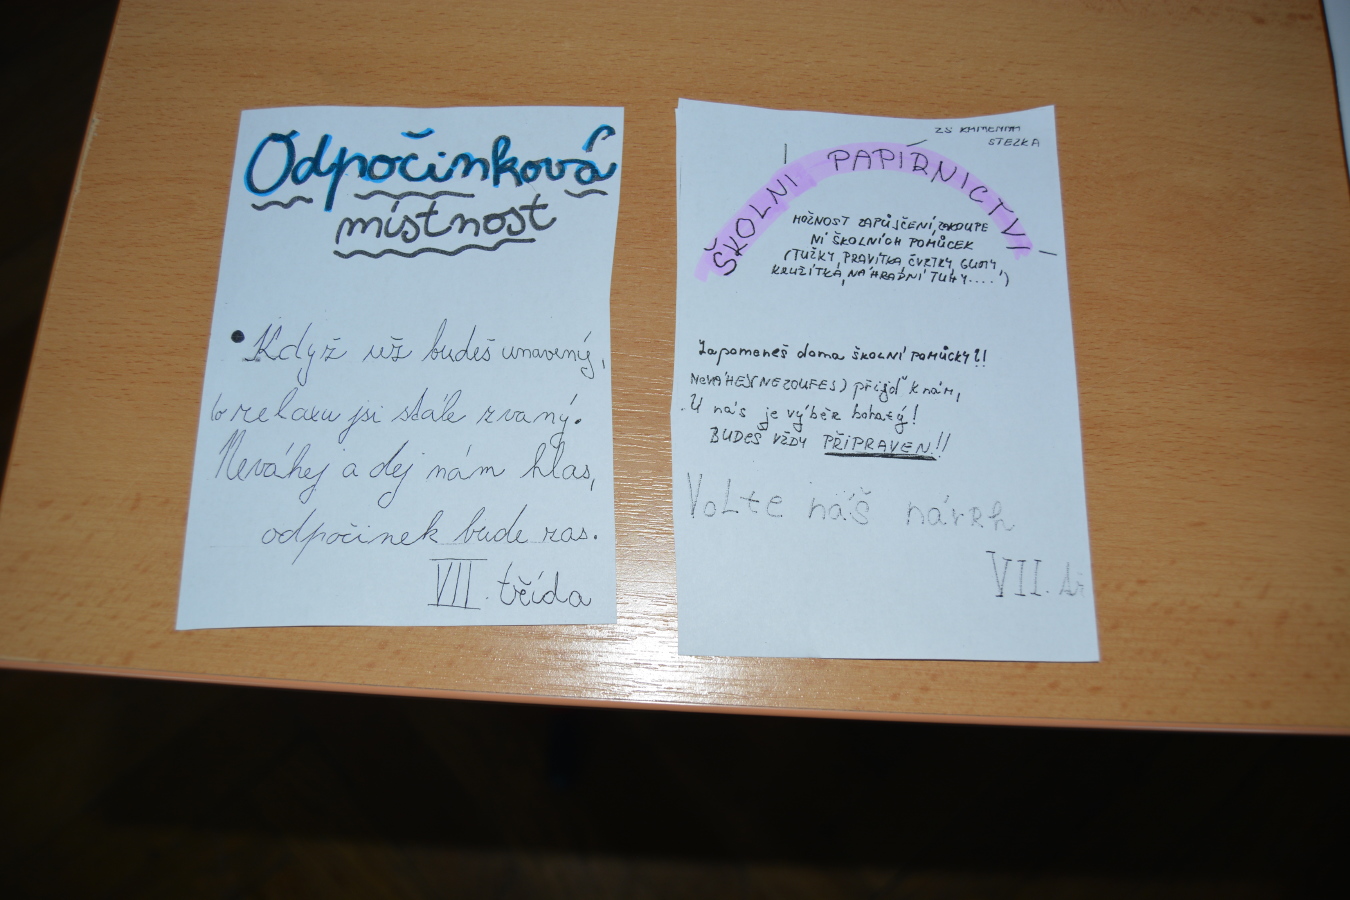 Odpočinková
místnost
Když už budeš unavený,
o relaxu jsi stále zvaný.
Neváhej a dej nám hlas,
odpočinek bude zas.
VII. třída
ZŠ KAMENNÁ
STEZKA
ŠKOLNÍ PAPÍRNICTVÍ
MOŽNOST ZAPŮJČENÍ, ZAKOUPE
NÍ ŠKOLNÍCH POMŮCEK
(TUŽKY, PRAVÍTKA, ČVRTKY, GUMY,
KRUŽÍTKA, NÁHRADNÍ TUHY....)
Zapomeneš doma ŠKOLNÍ POMŮCKY?!
NEVÁHEJ(NEZOUFEJ) přijď k nám,
U nás je výběr bohatý!
BUDEŠ VŽDY PŘIPRAVEN!!
Volte náš návrh
VII.